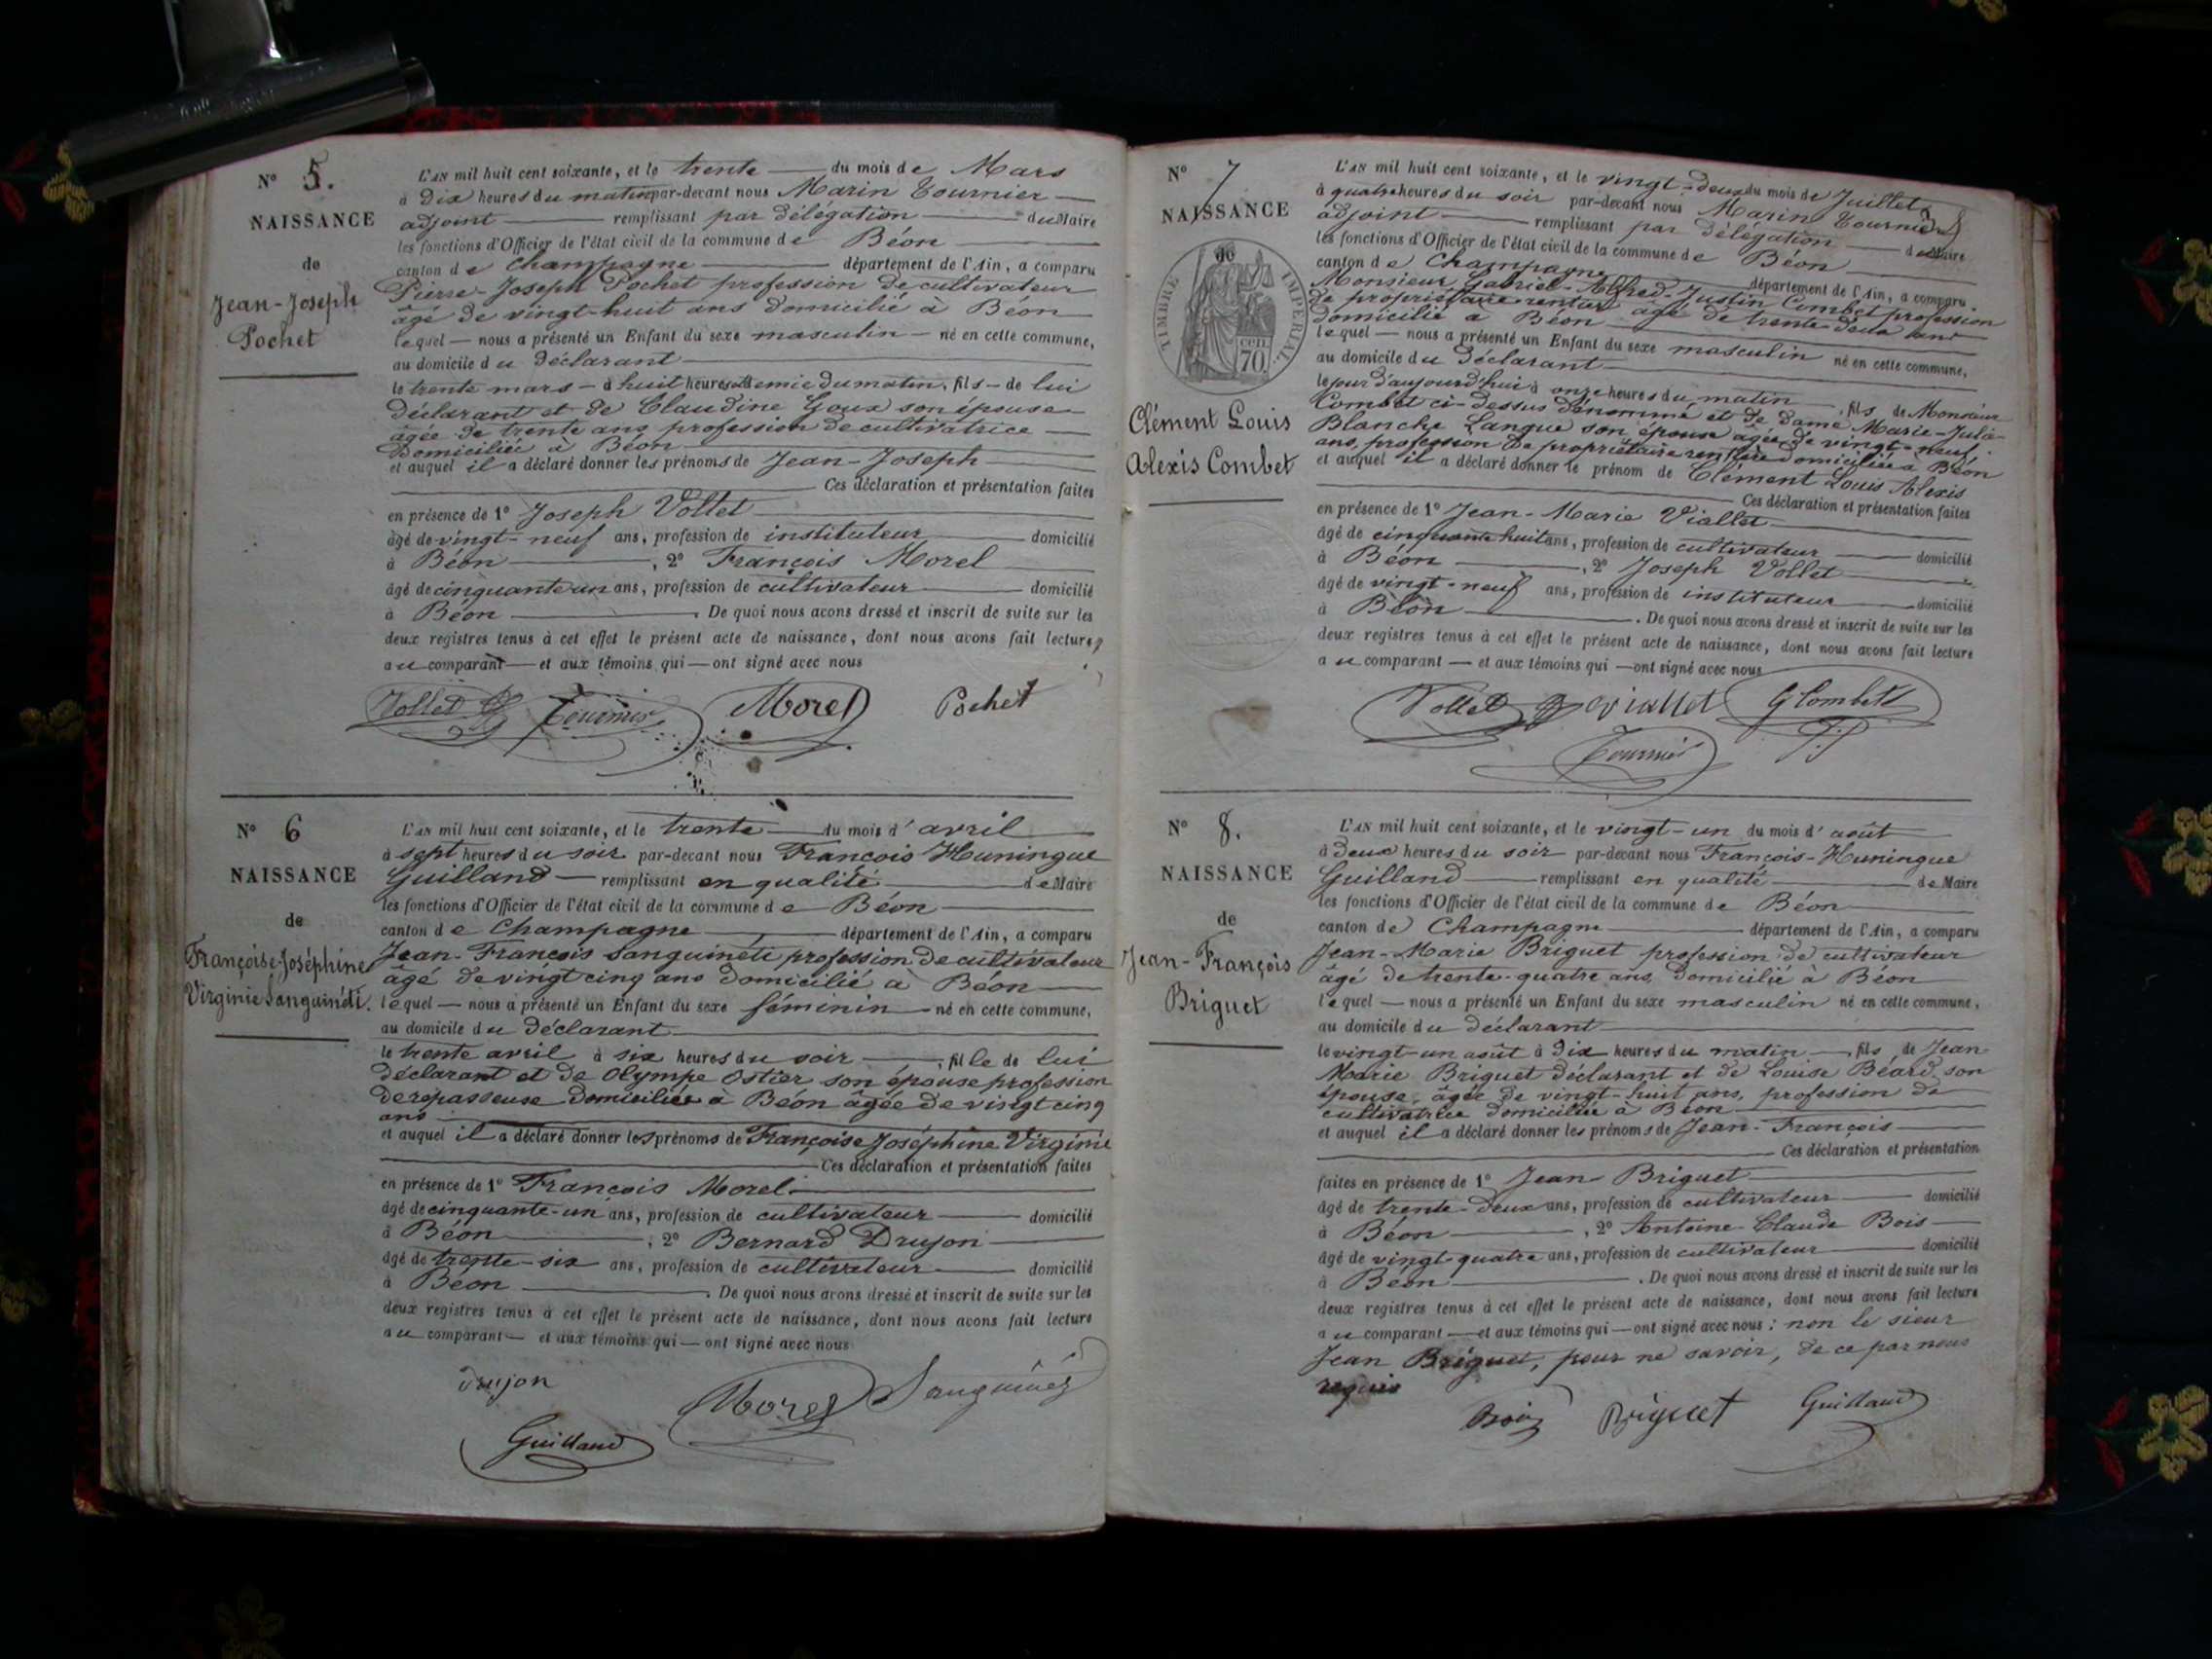 N° 5.
NAISSANCE
de
Jean-Joseph
Pochet
L'AN mil huit cent soixante, et le trente du mois de Mars
à dix heures du matin par-devant nous Marin Tournier
adjoint remplissant par délégation du Maire
les fonctions d'Officier de l'état civil de la commune de Béon
canton de Champagne département de l'Ain, a comparu
Pierre-Joseph Pochet profession de cultivateur
âgé de vingt-huit ans domicilié à Béon
lequel nous a présenté un Enfant du sexe masculin né en cette commune,
au domicile du déclarant
le trente mars à huit heures & demie du matin, fils de lui
déclarant et de Claudine Goux son épouse
âgée de trente ans profession de cultivatrice
domiciliée à Béon
et auquel il a déclaré donner les prénoms de Jean-Joseph
Ces déclaration et présentation faites
en présence de 1° Joseph Vollet
âgé de vingt-neuf ans, profession de instituteur domicilié
à Béon, 2° François Morel
âgé de cinquante un ans, profession de cultivateur domicilié
à Béon. De quoi nous avons dressé et inscrit de suite sur les
deux registres tenus à cet effet le présent acte de naissance, dont nous avons fait lecture,
au comparant et aux témoins qui ont signé avec nous
Vollet Tournier Morel Pochet
N° 6
NAISSANCE
de
Françoise Joséphine
Virginie Sanguinéti.
L'AN mil huit cent soixante, et le trente du mois d'avril
à sept heures du soir par-devant nous François Huningue
Guilland remplissant en qualité de Maire
les fonctions d'Officier de l'état civil de la commune de Béon
canton de Champagne département de l'Ain, a comparu
Jean-François Sanguinéti profession de cultivateur
âgé de vingt cinq ans domicilié à Béon
lequel nous a présenté un Enfant du sexe féminin né en cette commune,
au domicile du déclarant
le trente avril à six heures du soir, fille de lui
déclarant et de Olympe Ostier son épouse profession
de repasseuse domiciliée à Béon âgée de vingt cinq
ans
et auquel il a déclaré donner les prénoms de Françoise Joséphine Virginie
Ces déclaration et présentation faites
en présence de 1° François Morel
âgé de cinquante-un ans, profession de cultivateur domicilié
à Béon, 2° Bernard Drujon
âgé de trente-six ans, profession de cultivateur domicilié
à Béon. De quoi nous avons dressé et inscrit de suite sur les
deux registres tenus à cet effet le présent acte de naissance, dont nous avons fait lecture
au comparant et aux témoins qui ont signé avec nous
drujon Morel Sanguinéti
Guilland
N° 7
NAISSANCE
de
TIMBRE IMPÉRIAL
cen. 70.
Clément Louis
Alexis Combet
L'AN mil huit cent soixante, et le vingt-deux du mois de Juillet
à quatre heures du soir par-devant nous Marin Tournier
adjoint remplissant par délégation du Maire
les fonctions d'Officier de l'état civil de la commune de Béon
canton de Champagne département de l'Ain, a comparu
Monsieur Gabriel-Alfred-Justin Combet profession
de propriétaire rentier âgé de trente deux ans
domicilié à Béon
lequel nous a présenté un Enfant du sexe masculin né en cette commune,
au domicile du déclarant
le jour d'aujourd'hui à onze heures du matin, fils de Monsieur
Combet ci-dessus dénommé et de dame Marie-Julie-
Blanche Langue son épouse âgée de vingt-neuf
ans, profession de propriétaire rentière domiciliée à Béon
et auquel il a déclaré donner le prénom de Clément Louis Alexis
Ces déclaration et présentation faites
en présence de 1° Jean-Marie Viallet
âgé de cinquante huit ans, profession de cultivateur domicilié
à Béon, 2° Joseph Vollet
âgé de vingt-neuf ans, profession de instituteur domicilié
à Béon. De quoi nous avons dressé et inscrit de suite sur les
deux registres tenus à cet effet le présent acte de naissance, dont nous avons fait lecture
au comparant et aux témoins qui ont signé avec nous
Vollet Viallet G Combet
Tournier
N° 8.
NAISSANCE
de
Jean-François
Briguet
L'AN mil huit cent soixante, et le vingt-un du mois d'août
à deux heures du soir par-devant nous François-Huningue
Guilland remplissant en qualité de Maire
les fonctions d'Officier de l'état civil de la commune de Béon
canton de Champagne département de l'Ain, a comparu
Jean-Marie Briguet profession de cultivateur
âgé de trente-quatre ans, domicilié à Béon
lequel nous a présenté un Enfant du sexe masculin né en cette commune,
au domicile du déclarant
le vingt-un août à dix heures du matin, fils de Jean
Marie Briguet déclarant et de Louise Béard son
épouse, âgée de vingt-huit ans, profession de
cultivatrice domiciliée à Béon
et auquel il a déclaré donner les prénoms de Jean-François
Ces déclaration et présentation
faites en présence de 1° Jean Briguet
âgé de trente-deux ans, profession de cultivateur domicilié
à Béon, 2° Antoine Claude Bois
âgé de vingt-quatre ans, profession de cultivateur domicilié
à Béon. De quoi nous avons dressé et inscrit de suite sur les
deux registres tenus à cet effet le présent acte de naissance, dont nous avons fait lecture
au comparant et aux témoins qui ont signé avec nous : non le sieur
Jean Briguet, pour ne savoir, de ce par nous
requis
Bois Briguet Guilland